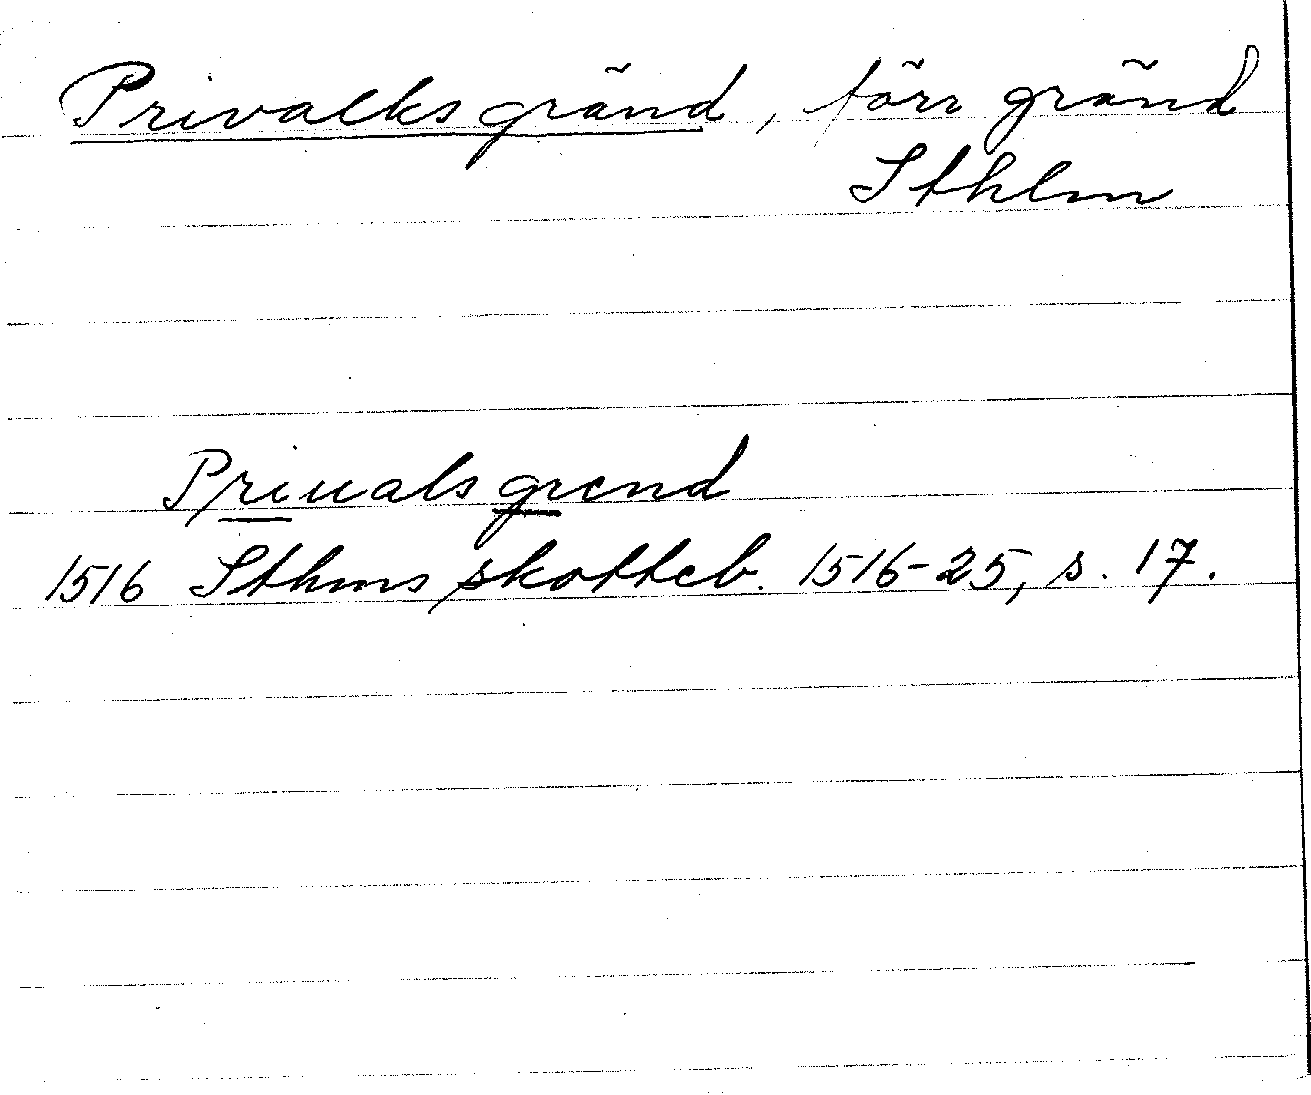 Privalks gränd, förr gränd
Sthlm
Priuals grend
1516 Sthms skotteb. 1516-25, s. 17.